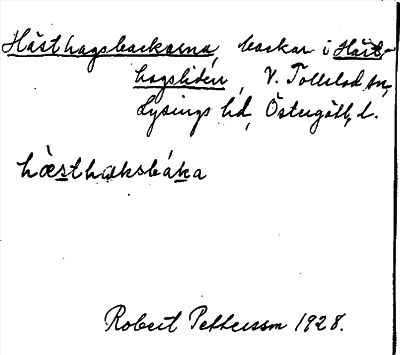 Hästhagsbackarna, backar i Häst-
hagsliden, V. Tollstad sn,
Lysings hd, Östergötl. l.
hæ̀sthaksbáka
Robert Pettersson 1928.